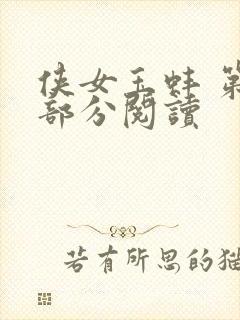 侠女玉蚌 第
部分閱讀
若有所思的猫